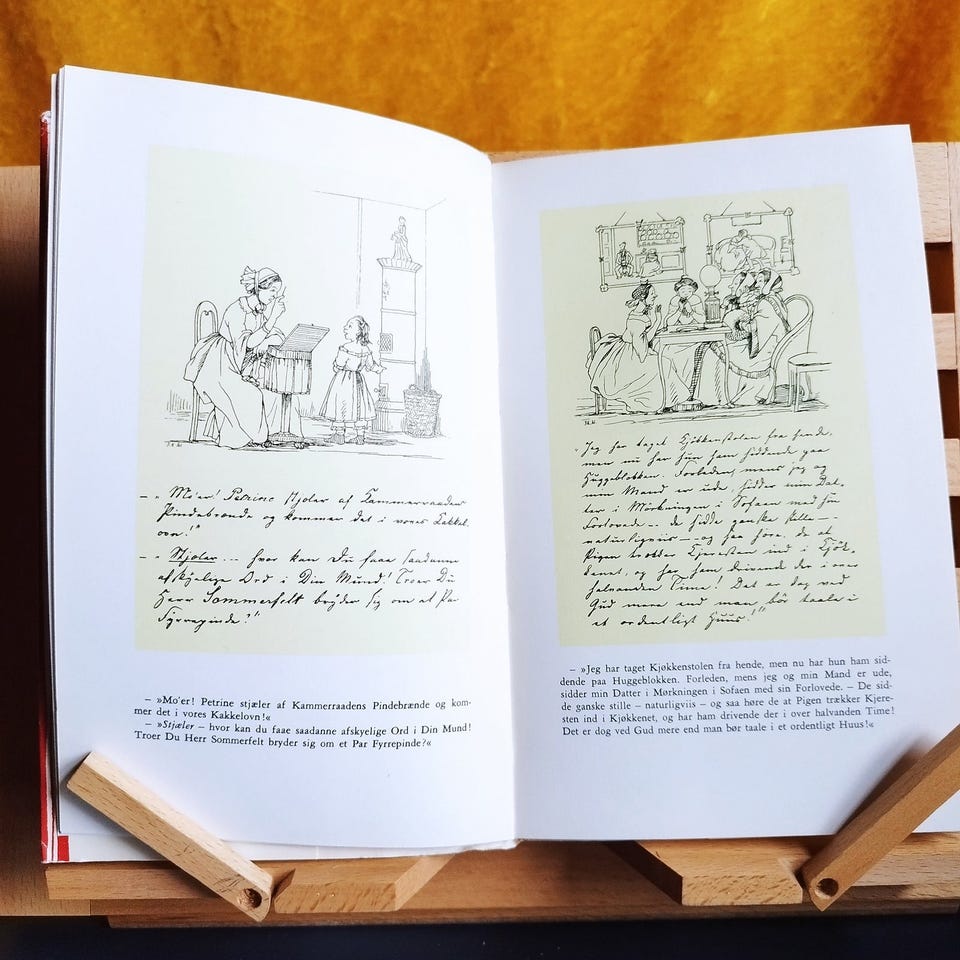 — „Mo'er! Petrine stjæler af Kammerraadens
Pindebrænde og kommer det i vores Kakkel
ovn!"
— „Stjæler... hvor kan Du faae saadanne
afskyelige Ord i Din Mund! Troer Du
Herr Sommerfelt bryder sig om et Par
Fyrrepinde?"
– »Mo'er! Petrine stjæler af Kammerraadens Pindebrænde og kom-
mer det i vores Kakkelovn!«
– »Stjæler – hvor kan du faae saadanne afskyelige Ord i Din Mund!
Troer Du Herr Sommerfelt bryder sig om et Par Fyrrepinde?«
„Jeg har taget Kjökkenstolen fra hende,
men nu har hun ham siddende paa
Huggeblokken. Forleden, mens jeg og
min Mand er ude, sidder min Dat-
ter i Mörkningen i Sofaen med sin
Forlovede. – de sidde ganske stille –
naturligviis – og saa höre, de at
Pigen trækker Kjeresten ind i Kjök-
kenet, og har ham drivende der i over
halvanden Time! Det er dog ved
Gud mere end man bör taale i
et ordentligt Huus!"
– »Jeg har taget Kjøkkenstolen fra hende, men nu har hun ham sid-
dende paa Huggeblokken. Forleden, mens jeg og min Mand er ude,
sidder min Datter i Mørkningen i Sofaen med sin Forlovede. – De sid-
de ganske stille – naturligviis – og saa høre de at Pigen trækker Kjere-
sten ind i Kjøkkenet, og har ham drivende der i over halvanden Time!
Det er dog ved Gud mere end man bør taale i et ordentligt Huus!«